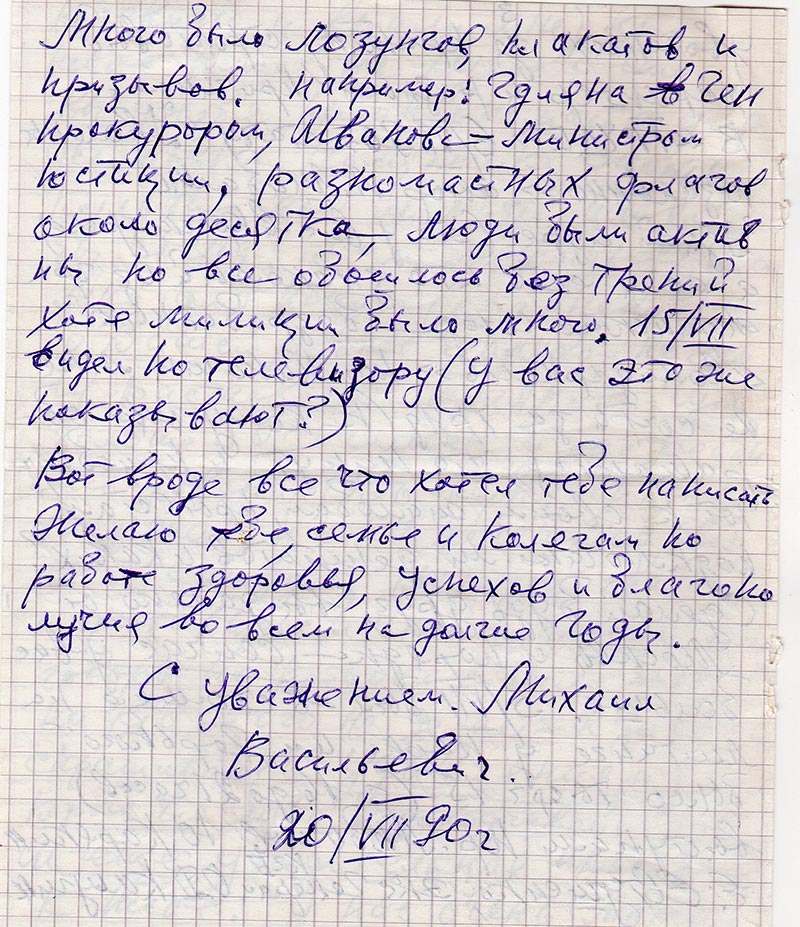 Много было лозунгов, плакатов и
призывов. например: Гдляна в Ген
прокурором, Иванов — министром
юстиции, разномастных флагов
около десятка, люди были актив
ны но все обошлось без трений
хотя милиции было много. 15/VII
видел по телевизору (у вас это же
показывают?)
Вот вроде все что хотел тебе написать
Желаю тебе, семье и колегам по
работе здоровья, успехов и благопо
лучия во всем на долгие годы.
С уважением. Михаил
Васильевич.
20/VII 90г